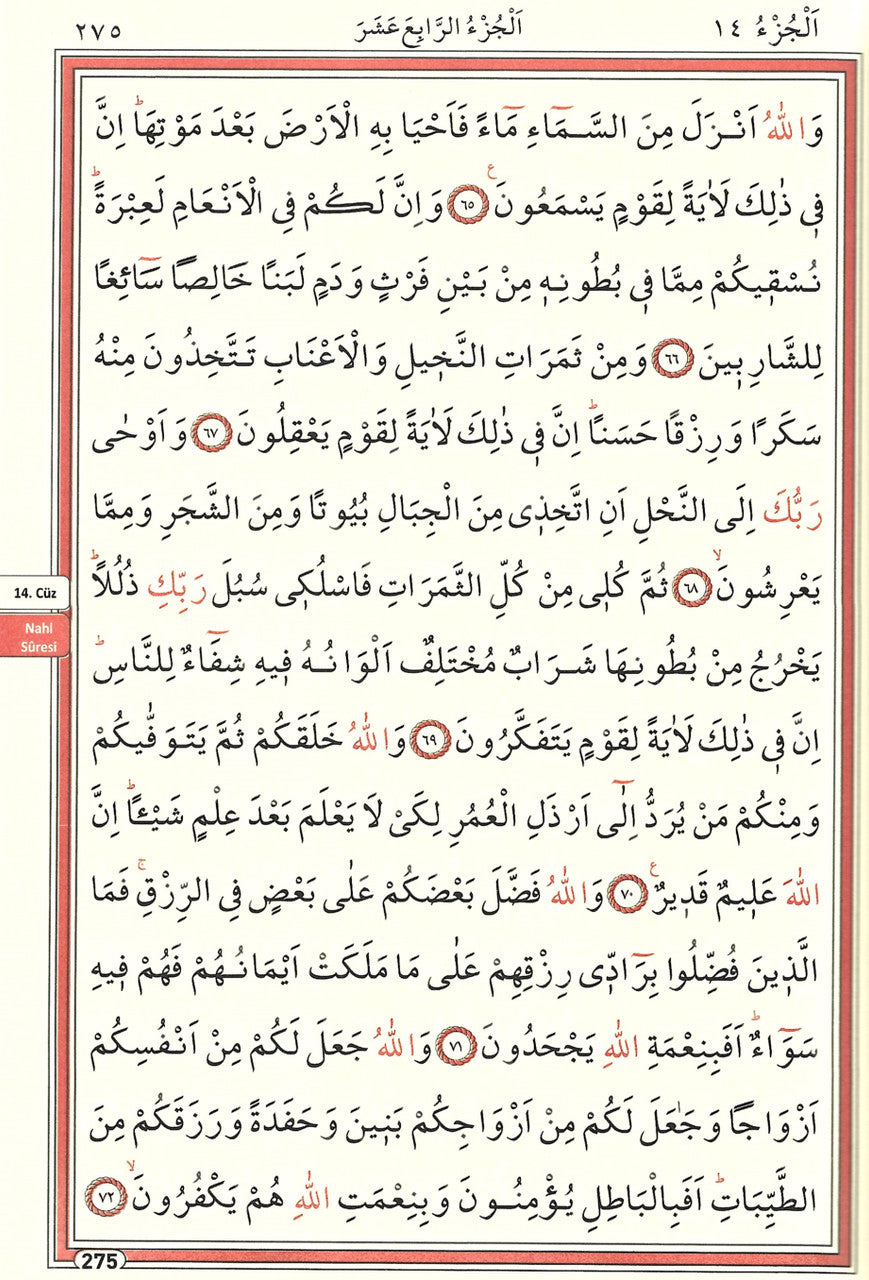 اَلْجُزْءُ ١٤ اَلْجُزْءُ الرَّابِعَ عَشَرَ ٢٧٥
وَاللّٰهُ اَنْزَلَ مِنَ السَّمَٓاءِ مَٓاءً فَاَحْيَا بِهِ الْاَرْضَ بَعْدَ مَوْتِهَاۜ اِنَّ
ف۪ي ذٰلِكَ لَاٰيَةً لِقَوْمٍ يَسْمَعُونَ۟ ﴿٦٥﴾ وَاِنَّ لَكُمْ فِي الْاَنْعَامِ لَعِبْرَةًۜ
نُسْق۪يكُمْ مِمَّا ف۪ي بُطُونِه۪ مِنْ بَيْنِ فَرْثٍ وَدَمٍ لَبَنًا خَالِصًا سَٓائِغًا
لِلشَّارِب۪ينَ ﴿٦٦﴾ وَمِنْ ثَمَرَاتِ النَّخ۪يلِ وَالْاَعْنَابِ تَتَّخِذُونَ مِنْهُ
سَكَرًا وَرِزْقًا حَسَنًاۜ اِنَّ ف۪ي ذٰلِكَ لَاٰيَةً لِقَوْمٍ يَعْقِلُونَ ﴿٦٧﴾ وَاَوْحٰى
رَبُّكَ اِلَى النَّحْلِ اَنِ اتَّخِذ۪ي مِنَ الْجِبَالِ بُيُوتًا وَمِنَ الشَّجَرِ وَمِمَّا
يَعْرِشُونَۙ ﴿٦٨﴾ ثُمَّ كُل۪ي مِنْ كُلِّ الثَّمَرَاتِ فَاسْلُك۪ي سُبُلَ رَبِّكِ ذُلُلًاۜ
14. Cüz
Nahl
Sûresi
يَخْرُجُ مِنْ بُطُونِهَا شَرَابٌ مُخْتَلِفٌ اَلْوَانُهُ ف۪يهِ شِفَٓاءٌ لِلنَّاسِۜ
اِنَّ ف۪ي ذٰلِكَ لَاٰيَةً لِقَوْمٍ يَتَفَكَّرُونَ ﴿٦٩﴾ وَاللّٰهُ خَلَقَكُمْ ثُمَّ يَتَوَفّٰيكُمْ
وَمِنْكُمْ مَنْ يُرَدُّ اِلٰٓى اَرْذَلِ الْعُمُرِ لِكَيْ لَا يَعْلَمَ بَعْدَ عِلْمٍ شَيْـًٔاۜ اِنَّ
اللّٰهَ عَل۪يمٌ قَد۪يرٌ۟ ﴿٧٠﴾ وَاللّٰهُ فَضَّلَ بَعْضَكُمْ عَلٰى بَعْضٍ فِي الرِّزْقِۚ فَمَا
الَّذ۪ينَ فُضِّلُوا بِرَٓادّ۪ي رِزْقِهِمْ عَلٰى مَا مَلَكَتْ اَيْمَانُهُمْ فَهُمْ ف۪يهِ
سَوَٓاءٌۜ اَفَبِنِعْمَةِ اللّٰهِ يَجْحَدُونَ ﴿٧١﴾ وَاللّٰهُ جَعَلَ لَكُمْ مِنْ اَنْفُسِكُمْ
اَزْوَاجًا وَجَعَلَ لَكُمْ مِنْ اَزْوَاجِكُمْ بَن۪ينَ وَحَفَدَةً وَرَزَقَكُمْ مِنَ
الطَّيِّبَاتِۜ اَفَبِالْبَاطِلِ يُؤْمِنُونَ وَبِنِعْمَتِ اللّٰهِ هُمْ يَكْفُرُونَۙ ﴿٧٢﴾
275